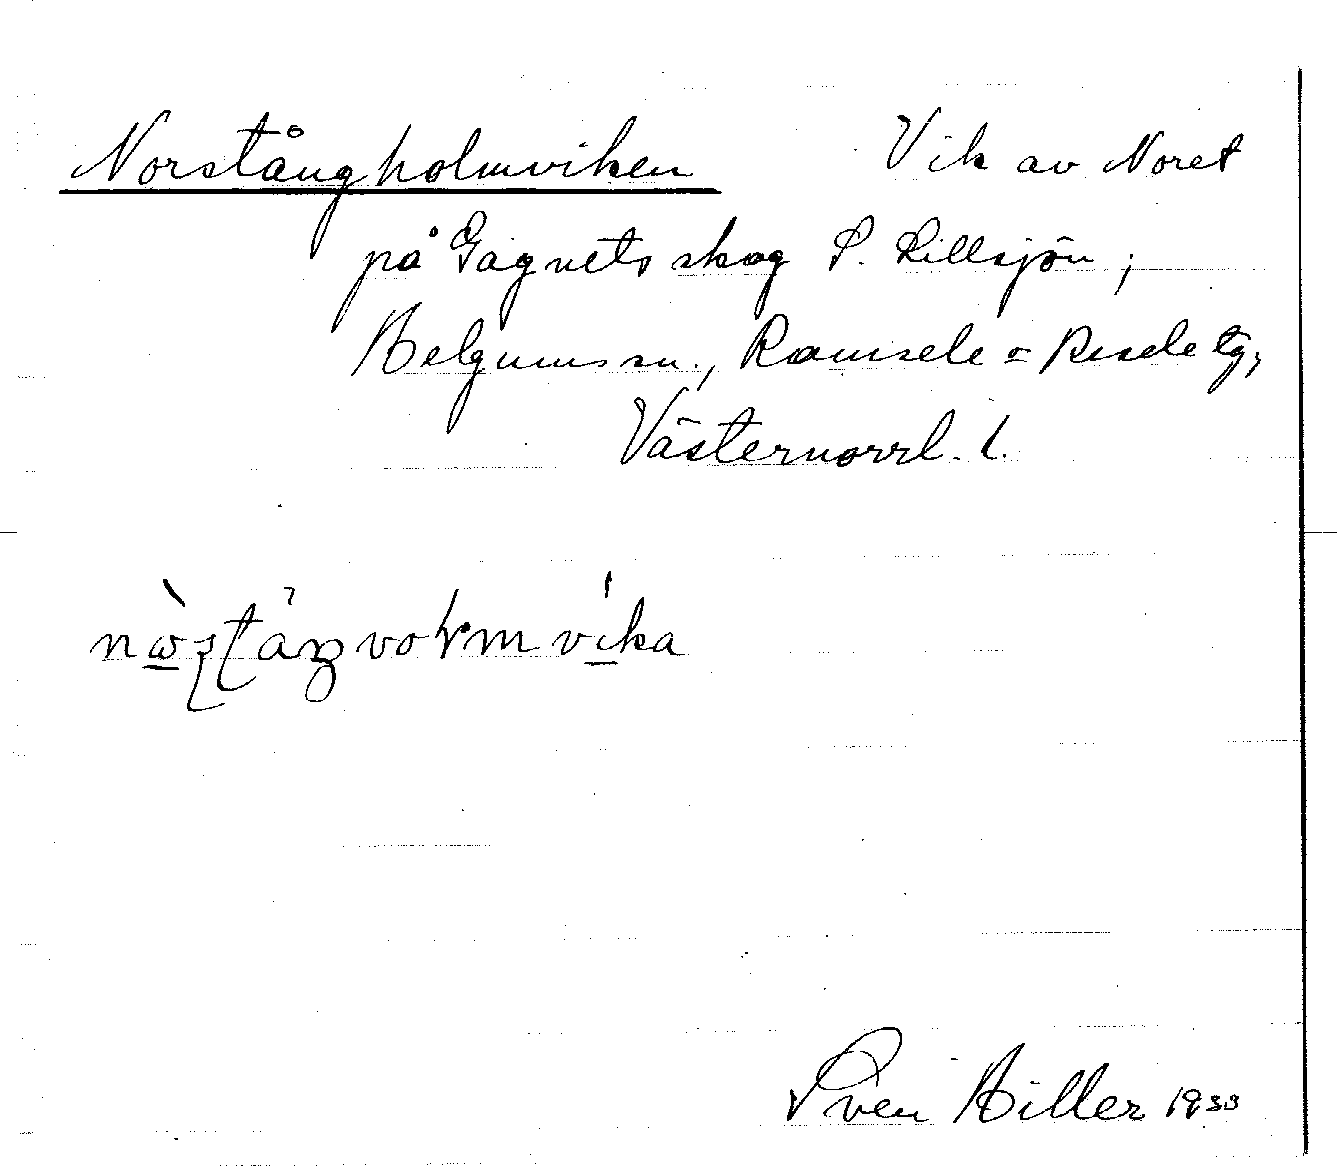 Norstångholmviken Vik av Noret
på Gagnets skog S. Lillsjön;
Helgums sn., Ramsele o Resele tg,
Västernorrl. l.
Sven Hiller 1933